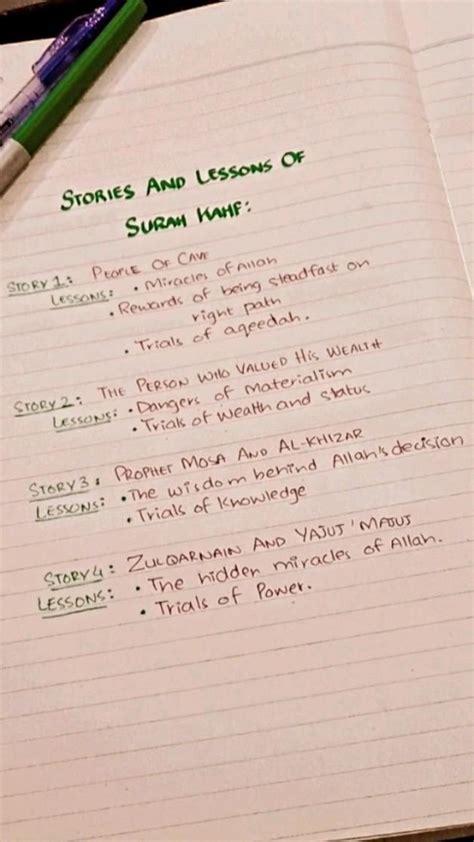 STORIES AND LESSONS OF
SURAH KAHF:
STORY 1: PEOPLE OF CAVE
LESSONS: • Miracles of Allah
• Rewards of being steadfast on
right path
• Trials of aqeedah.
STORY 2: THE PERSON WHO VALUED HIS WEALTH
LESSONS: • Dangers of Materialism
• Trials of wealth and status
STORY 3: PROPHET MOSA AND AL-KHIZAR
LESSONS: • The wisdom behind Allah's decision
• Trials of Knowledge
STORY 4: ZULQARNAIN AND YAJUJ MAJUJ
LESSONS: • The hidden miracles of Allah.
• Trials of Power.